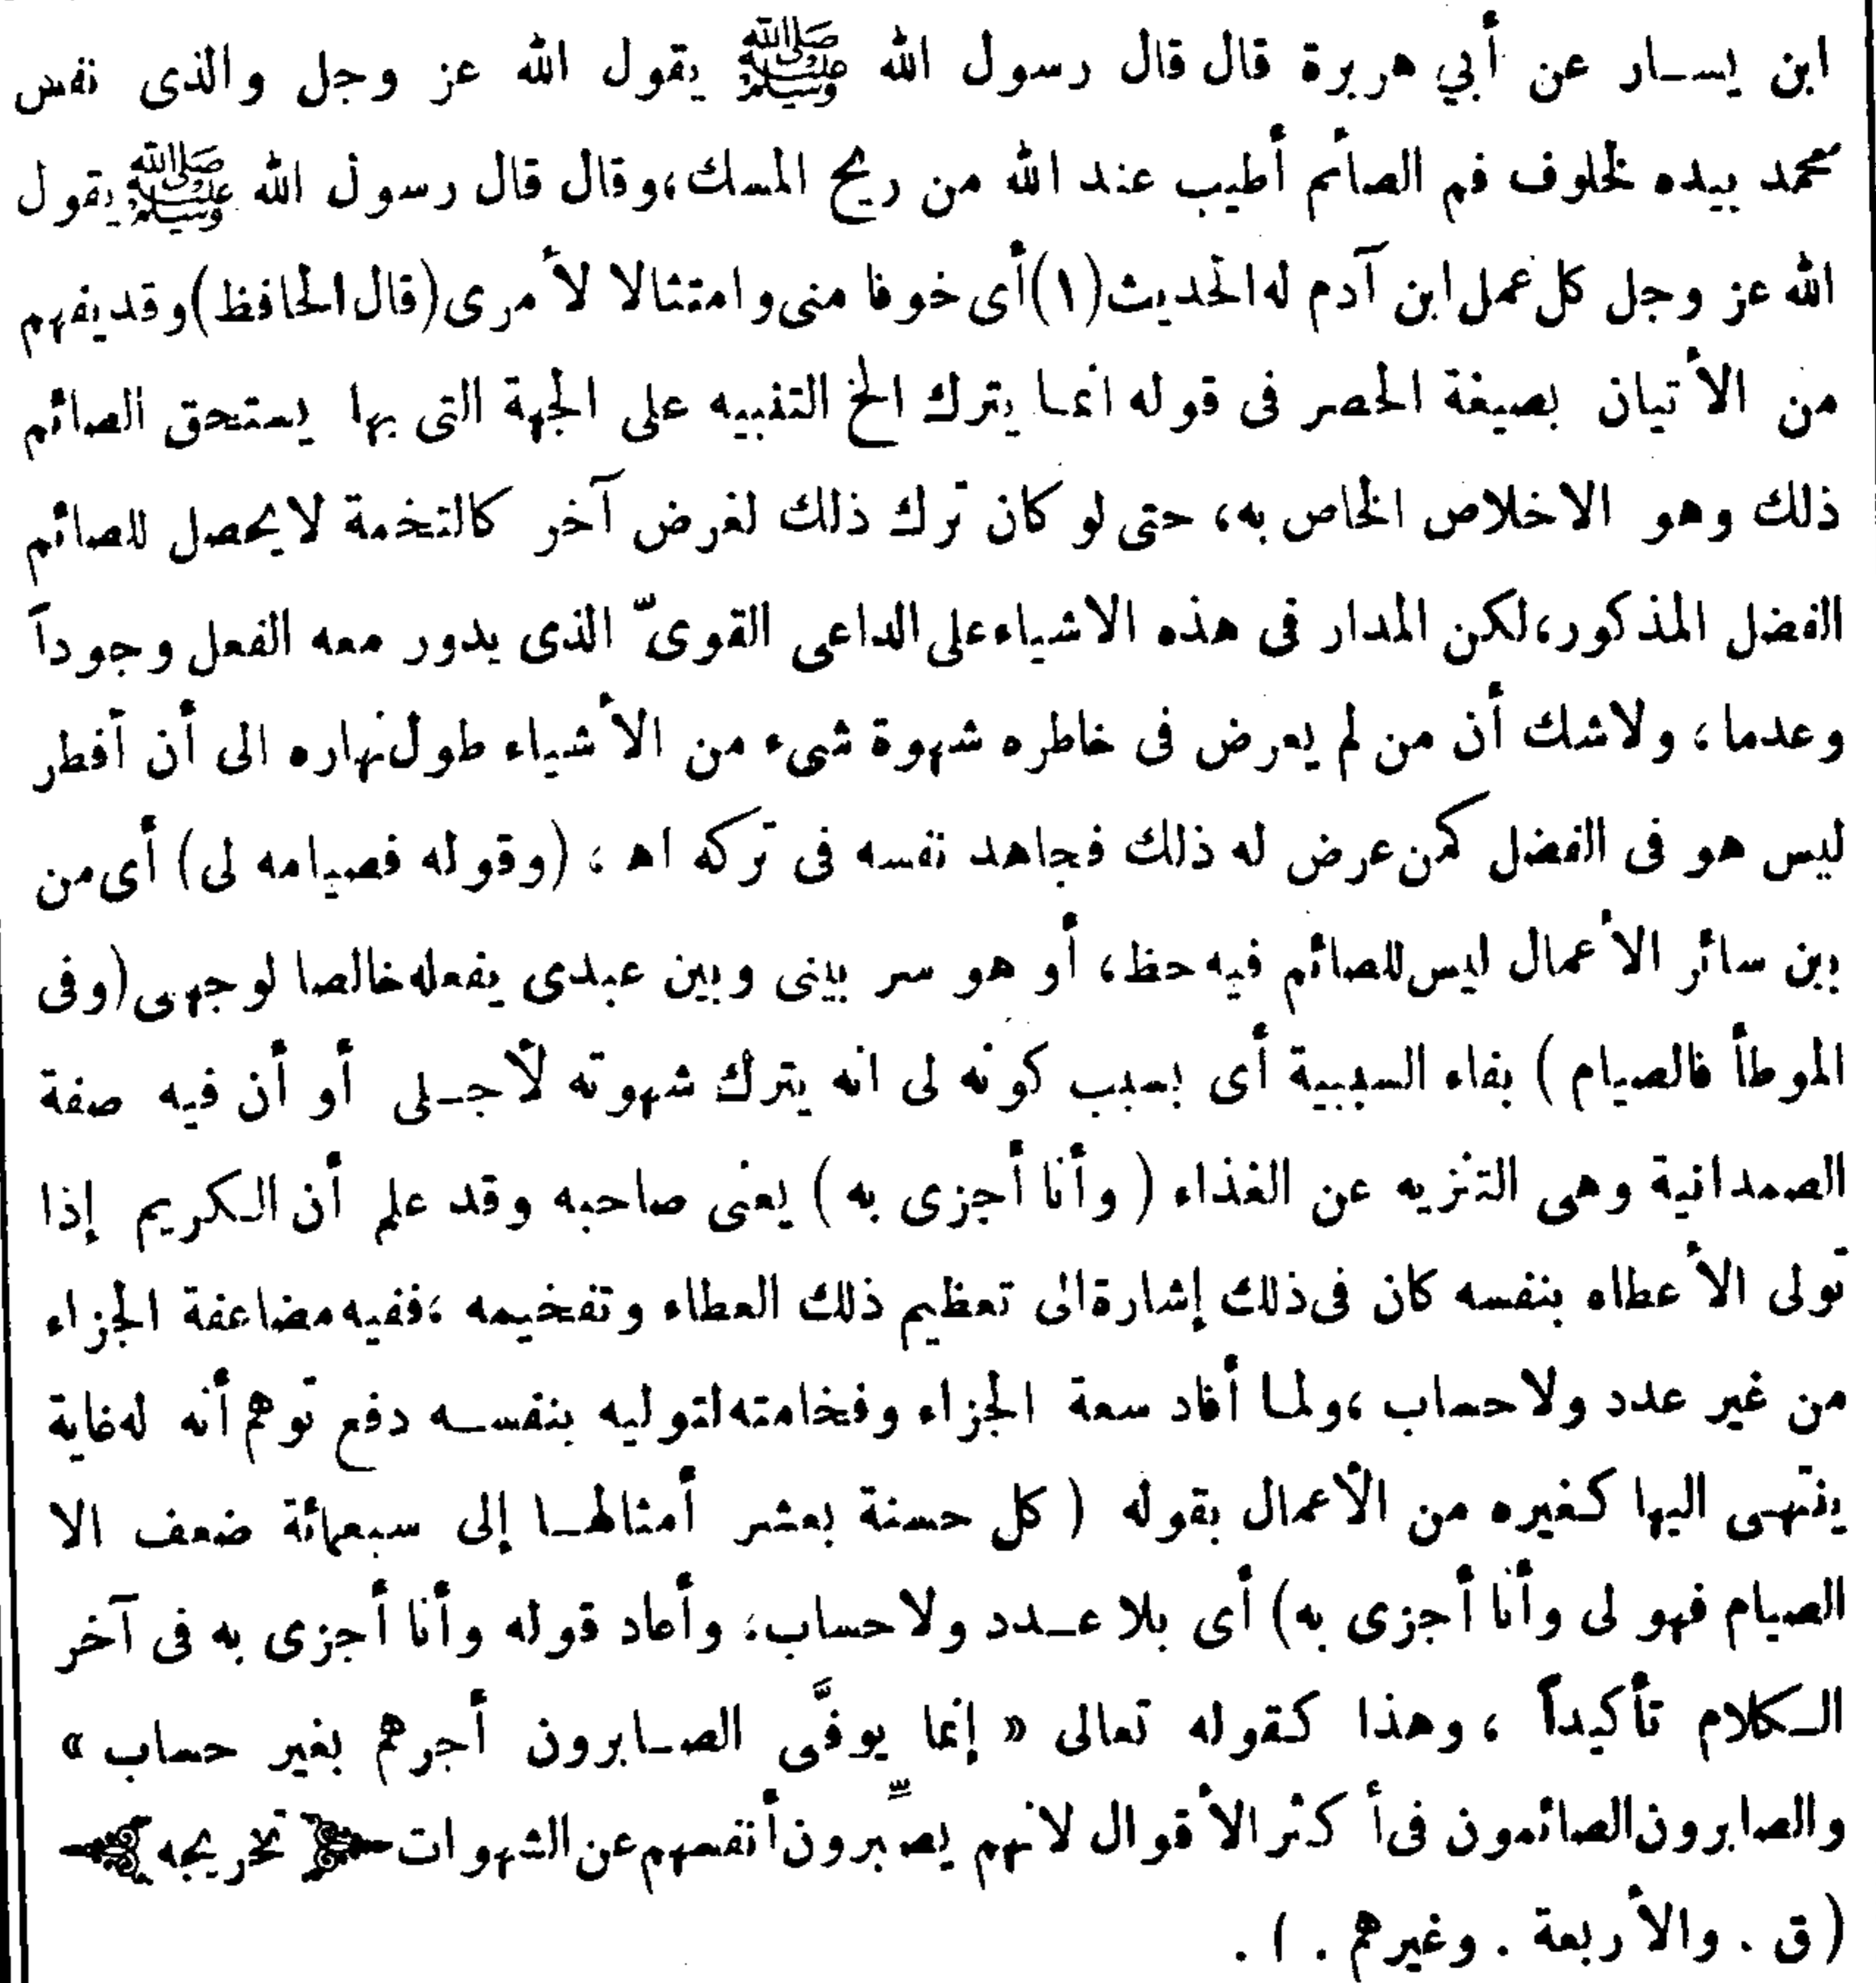 ابن يسـار عن أبي هريرة قال قال رسول الله ﷺ يقول الله عز وجل والذى نفس
محمد بيده لخلوف فم الصائم أطيب عند الله من ريح المسك،وقال قال رسول الله ﷺ يقول
الله عز وجل كل عمل ابن آدم له الحديث (١) أى خوفا منى وامتثالا لأمرى (قال الحافظ) وقد يفهم
من الأتيان بصيغة الحصر فى قوله انما يترك الخ التنبيه على الجهة التى بها يستحق الصائم
ذلك وهو الاخلاص الخاص به، حتى لو كان ترك ذلك لغرض آخر كالتخمة لا يحصل للصائم
الفضل المذكور،لكن المدار فى هذه الاشياء على الداعى القوىّ الذى يدور معه الفعل وجوداً
وعدما، ولاشك أن من لم يعرض فى خاطره شهوة شىء من الأشياء طول نهاره الى أن أفطر
ليس هو فى الفضل كمن عرض له ذلك فجاهد نفسه فى تركه اهـ ، (وقوله فصيامه لى) أى من
بين سائر الأعمال ليس للصائم فيه حظ، أو هو سر بينى وبين عبدى يفعله خالصا لوجهى (وفى
الموطأ فالصيام) بفاء السببية أى بسبب كونه لى انه يترك شهوته لأجـلى أو أن فيه صفة
الصمدانية وهى التنزيه عن الغذاء (وأنا أجزى به) يعنى صاحبه وقد علم أن الكريم إذا
تولى الأعطاء بنفسه كان فى ذلك إشارة الى تعظيم ذلك العطاء وتفخيمه ،ففيه مضاعفة الجزاء
من غير عدد ولا حساب ،ولما أفاد سعة الجزاء وفخامته لتوليه بنفسـه دفع توهم أنه له غاية
ينتهى اليها كغيره من الأعمال بقوله (كل حسنة بعشر أمثالهـا إلى سبعمائة ضعف الا
الصيام فهو لى وأنا أجزى به) أى بلا عـدد ولا حساب، وأعاد قوله وأنا أجزى به فى آخر
الـكلام تأكيداً ، وهذا كقوله تعالى « إنما يوفَّى الصـابرون أجرهم بغير حساب »
والصابرون الصائمون فى أكثر الأقوال لانهم يصبِّرون أنفسهم عن الشهوات تخريجه
(ق . والأربعة . وغيرهم . ) .